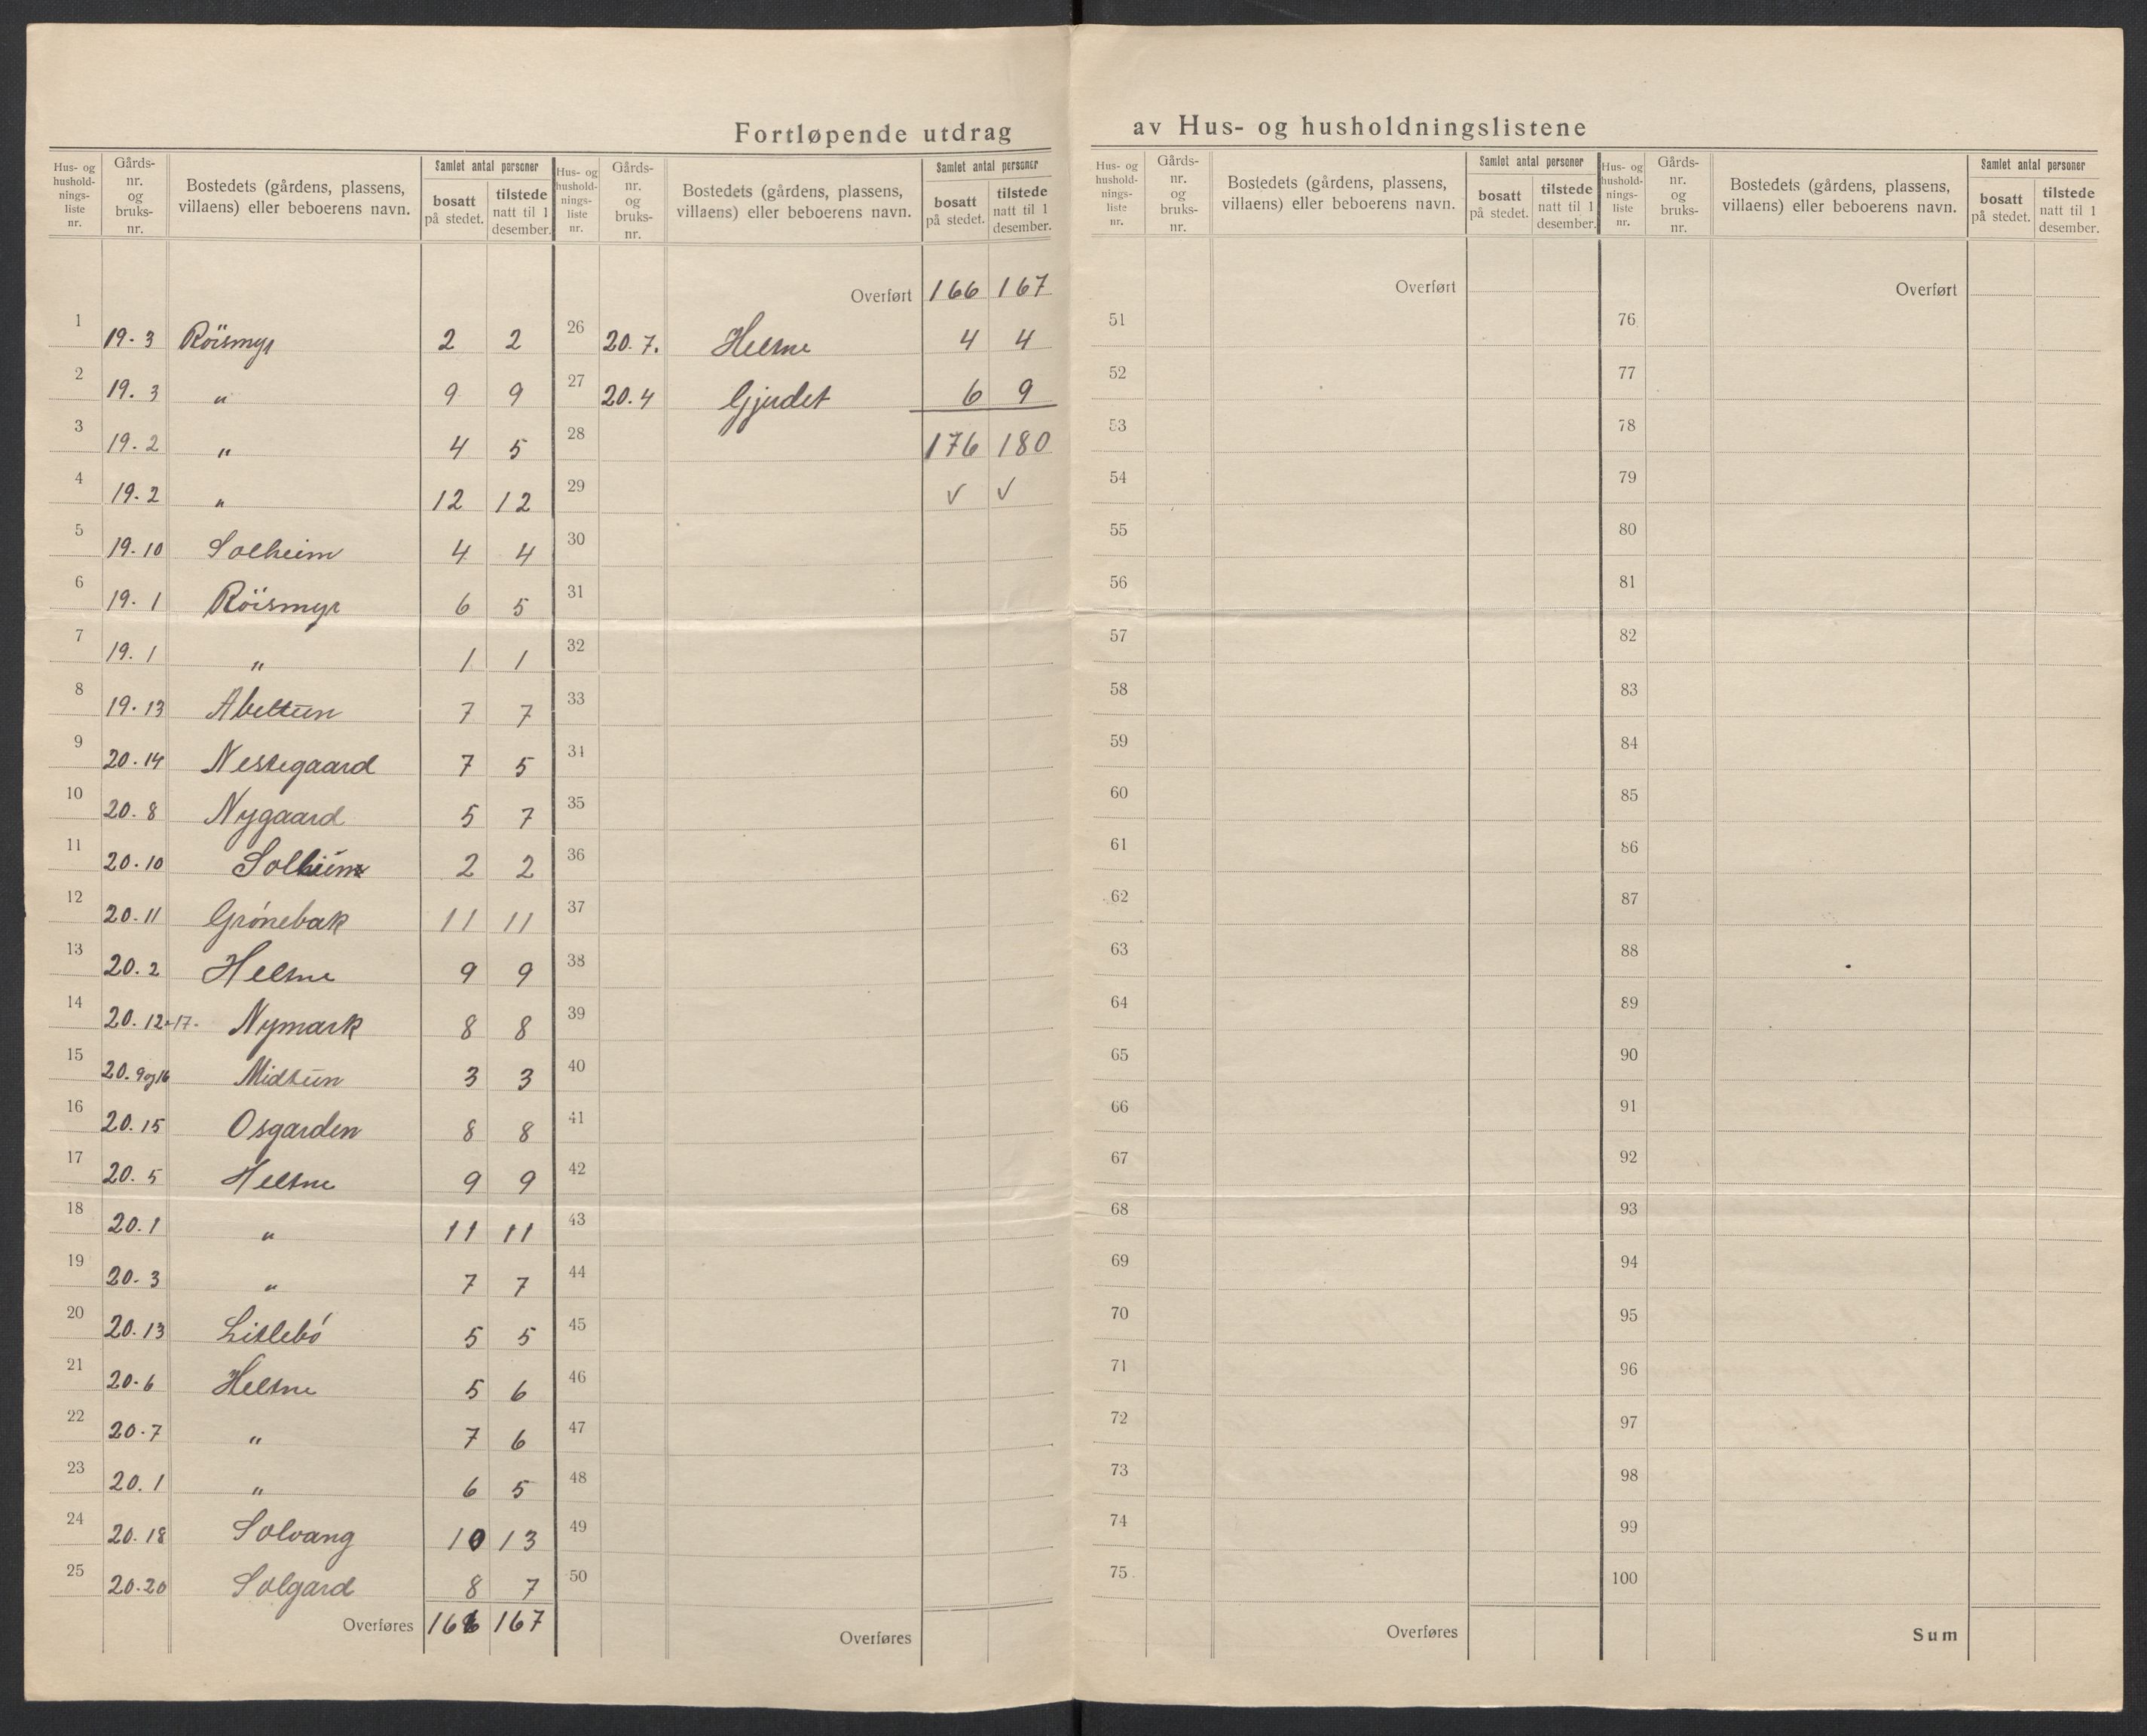 Fortløpende utdrag av Hus- og husholdningslistene
Hus- og husholdningsliste nr. | Gårds-nr. og bruks-nr. | Bostedets (gårdens, plassens, villaens) eller beboerens navn. | Samlet antal personer | bosatt på stedet. | tilstede natt til 1 desember.
1 19.3 Röismyr 2 2
2 19.3 " 9 9
3 19.2 " 4 5
4 19.2 " 12 12
5 19.10 Solheim 4 4
6 19.1 Röismyr 6 5
7 19.1 " 1 1
8 19.13 Abeltun 7 7
9 20.14 Nestegaard 7 5
10 20.8 Nygaard 5 7
11 20.10 Solheim 2 2
12 20.11 Grónebak 11 11
13 20.2 Heltne 9 9
14 20.12+17. Nymark 8 8
15 20.9og16 Midtun 3 3
16 20.15 Osgarden 8 8
17 20.5 Heltne 9 9
18 20.1 " 11 11
19 20.3 " 7 7
20 20.13 Litlebó 5 5
21 20.6 Heltne 5 6
22 20.7 " 7 6
23 20.1 " 6 5
24 20.18 Solvang 10 13
25 20.20 Solgard 8 7
Overføres 166 167
Hus- og husholdningsliste nr. | Gårds-nr. og bruks-nr. | Bostedets (gårdens, plassens, villaens) eller beboerens navn. | Samlet antal personer | bosatt på stedet. | tilstede natt til 1 desember.
Overført 166 167
26 20.7. Heltne 4 4
27 20.4 Gjerdet 6 9
28 176 180
29 ✓ ✓
30
31
32
33
34
35
36
37
38
39
40
41
42
43
44
45
46
47
48
49
50
Overføres
Hus- og husholdningsliste nr. | Gårds-nr. og bruks-nr. | Bostedets (gårdens, plassens, villaens) eller beboerens navn. | Samlet antal personer | bosatt på stedet. | tilstede natt til 1 desember.
Overført
51
52
53
54
55
56
57
58
59
60
61
62
63
64
65
66
67
68
69
70
71
72
73
74
75
Overføres
Hus- og husholdningsliste nr. | Gårds-nr. og bruks-nr. | Bostedets (gårdens, plassens, villaens) eller beboerens navn. | Samlet antal personer | bosatt på stedet. | tilstede natt til 1 desember.
Overført
76
77
78
79
80
81
82
83
84
85
86
87
88
89
90
91
92
93
94
95
96
97
98
99
100
Sum